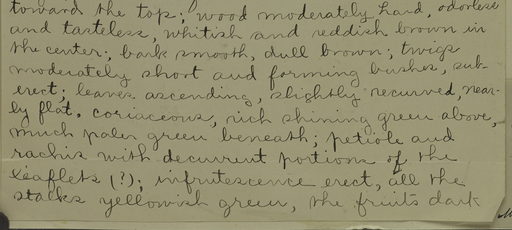 toward the top; wood moderately hard, odorless
and tasteless, whitish and reddish brown in
the center; bark smooth, dull brown; twigs
moderately short and forming bushes, sub-
erect; leaves ascending, slightly recurved, near-
ly flat, coriaceous, rich shining green above,
much paler green beneath; petiole and
rachis with decurrent portions of the
leaflets (?); infrutescence erect, all the
stalks yellowish green, the fruits dark